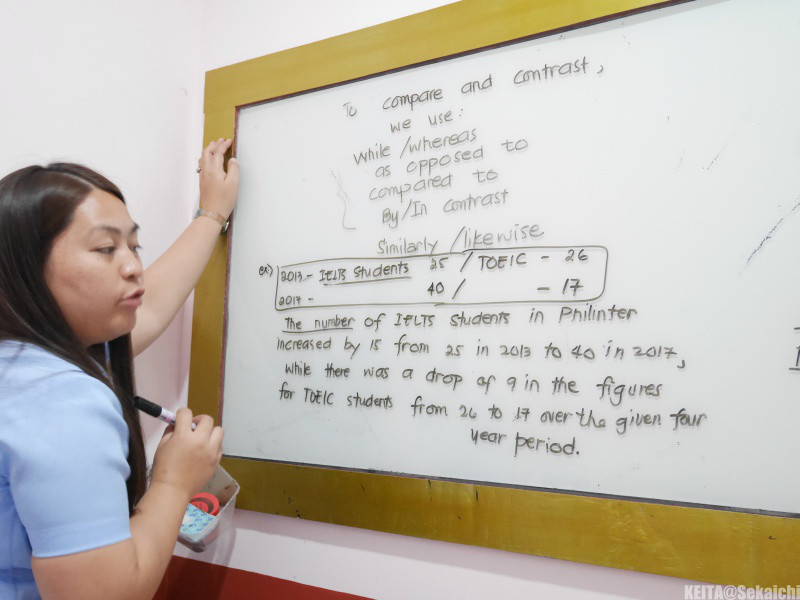 To compare and contrast,
we use:
while /whereas
as opposed to
compared to
By/In contrast
Similarly /likewise
ex) 2013 - IELTS students 25 / TOEIC - 26
2017 - 40 / - 17
The number of IELTS students in Philinter
increased by 15 from 25 in 2013 to 40 in 2017,
while there was a drop of 9 in the figures
for TOEIC students from 26 to 17 over the given four
year period.
KEITA@Sekaichi